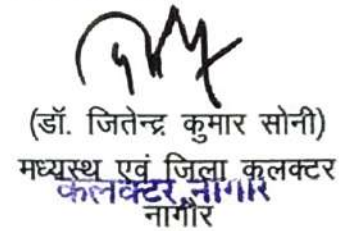 (डॉ. जितेन्द्र कुमार सोनी)
मध्यस्थ एवं जिला कलक्टर
कलक्टर, नागौर
नागौर